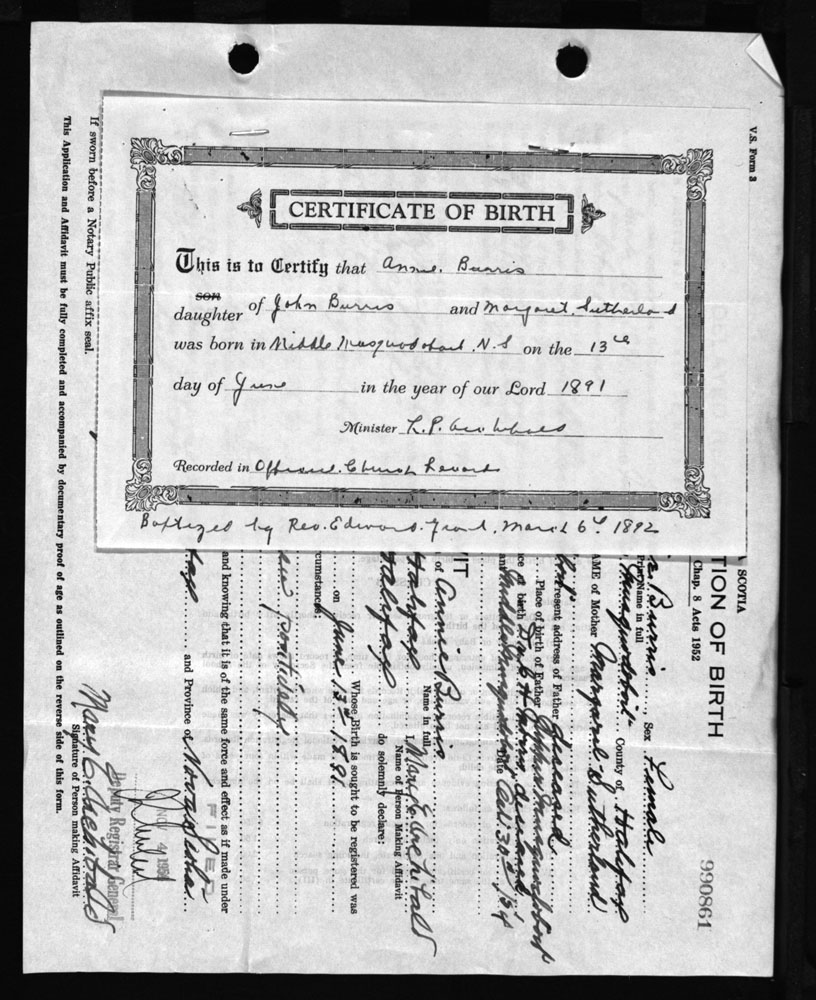 CERTIFICATE OF BIRTH
This is to Certify that Annie. Burris
son
daughter of John Burris and Margaret. Sutherland
was born in Middle Musquodoboit. N.S on the 13th
day of June in the year of our Lord 1891
Minister L.P. Archibald
Recorded in Official. Church Records
Baptized by Rev. Edward Grant. March 6th 1892
V.S. Form 3
990861
SCOTIA
TION OF BIRTH
Chap. 8 Acts 1952
Burris Sex Female
Print Name in full
Musquodoboit County of Halifax
AME of Mother Margaret Sutherland
Present address of Father deceased
Place of birth of Father Upper Musquodoboit
ce of birth
and Middle Musquodoboit Date Oct. 30
IT
of Annie Burris
Name in full
Halifax I, Mary E Archibald
Name of Person Making Affidavit
Halifax do solemnly declare:
Whose Birth is sought to be registered was
on June 13th 1891
cumstances:
positively
and knowing that it is of the same force and effect as if made under
FILED
and Province of Nova Scotia
NOV 4 195
Deputy Registrar General
Mary E Archibald
Signature of Person making Affidavit
This Application and Affidavit must be fully completed and accompanied by documentary proof of age as outlined on the reverse side of this form.
If sworn before a Notary Public affix seal.